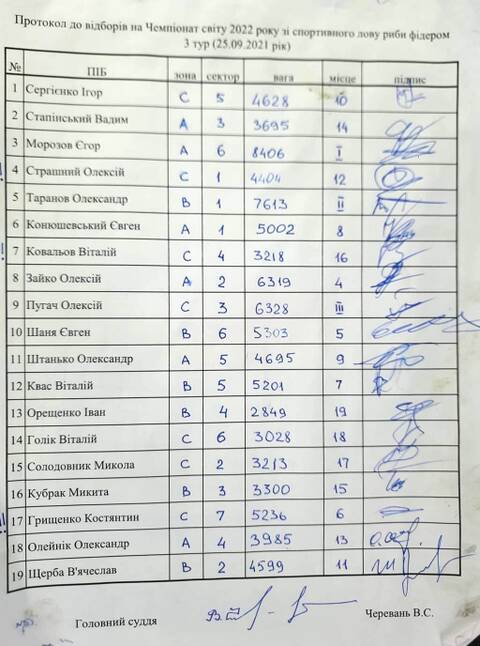 Протокол до відборів на Чемпіонат світу 2022 року зі спортивного лову риби фідером
3 тур (25.09.2021 рік)
№ ПІБ зона сектор вага місце підпис
1 Сергієнко Ігор C 5 4628 10
2 Стапінський Вадим A 3 3695 14
3 Морозов Єгор A 6 8406 I
4 Страшний Олексій C 1 4404 12
5 Таранов Олександр B 1 7613 II
6 Конюшевський Євген A 1 5002 8
7 Ковальов Віталій C 4 3218 16
8 Зайко Олексій A 2 6319 4
9 Пугач Олексій C 3 6328 III
10 Шаня Євген B 6 5303 5
11 Штанько Олександр A 5 4695 9
12 Квас Віталій B 5 5201 7
13 Орещенко Іван B 4 2849 19
14 Голік Віталій C 6 3028 18
15 Солодовник Микола C 2 3213 17
16 Кубрак Микита B 3 3300 15
17 Грищенко Костянтин C 7 5236 6
18 Олейнік Олександр A 4 3985 13
19 Щерба В'ячеслав B 2 4599 11
Головний суддя Черевань В.С.